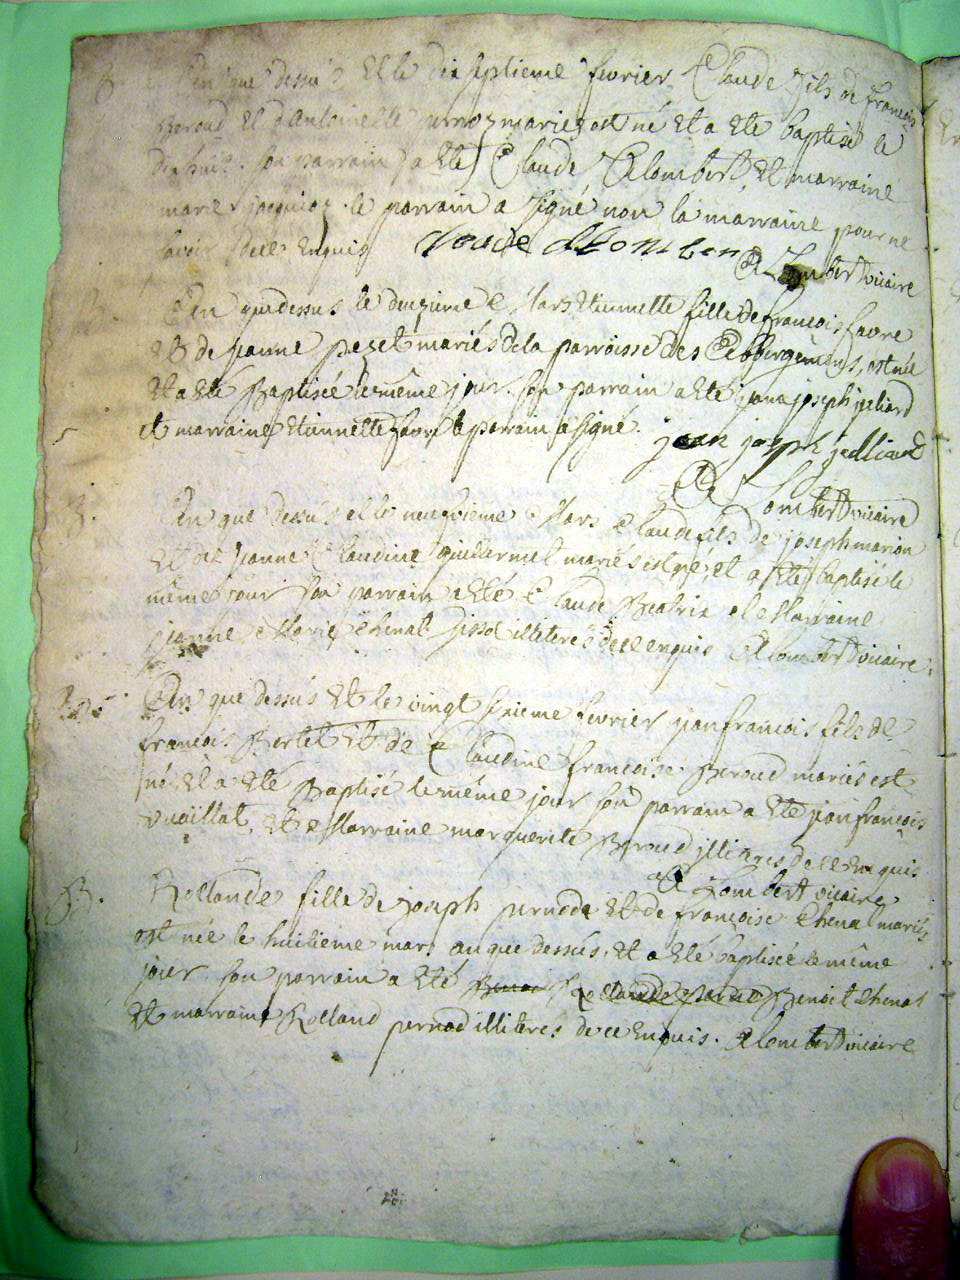 en que dessus et le dix septieme fevrier Claude fils de francois
Beroud et d'antoinette mariez est né et a eté baptisé le
dix huit. son parrain a eté Claude Clombert, et marraine
marie jacquioz. le parrain a signé non la marraine pour ne
savoir de ce enquis Claude Clomber Clombert vicaire
en que dessus le deuzieme Mars Etiennette fille de francois favre
et de jeanne pezet mariés de la parroisse des est née
et a eté Baptisée le même jour. son parrain a eté jean joseph jeliard
et marraine etiennette favre le parrain a signé. jean joseph jedliard
Clombert vicaire
3. en que dessus et le neufvieme Mars Claude fils de joseph marion
et de jeanne Claudine mariés est né, et a eté baptisé le
même jour son parrain a eté Claude Beatrix et Marraine
jeanne Marie Chenat illiteres de ce enquis Clombert vicaire.
en que dessus et le vingt sixieme fevrier jean francois fils de
francois Bertet et de Claudine francoise Beroud mariés est
né et a eté Baptisé le même jour son parrain a eté jean francois
vuaillat, et Marraine marguerite Beroud illiteres de ce enquis
Clombert vicaire
B. Rollande fille de joseph pernode et de francoise Chenat mariés
est née le huitieme mars an que dessus, et a eté baptisée le même
jour son parrain a eté Benoit Chenat
et marraine Rolland pernod illiteres de ce enquis. Clombert vicaire